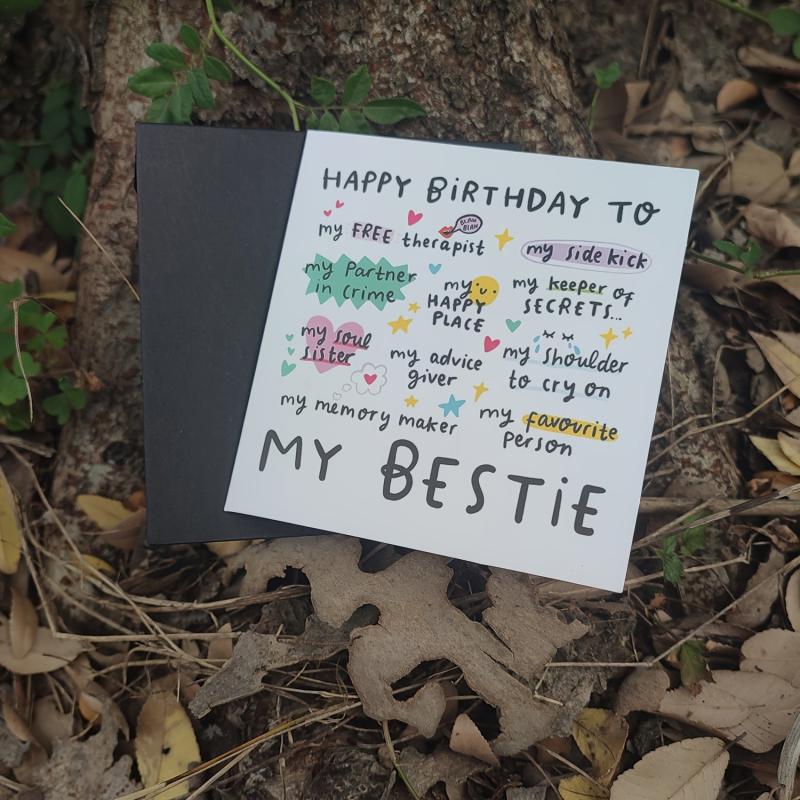 HAPPY BiRTHDAY TO
my FREE therapist
BLAH BLAH
my side kick
my Partner
in crime
my
HAPPY
PLACE
my keeper of
SECRETS...
my soul
sister
my advice
giver
my shoulder
to cry on
my memory maker
my favourite
person
MY BESTiE